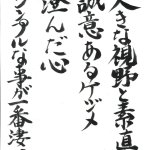 大きな視野と素直
誠意あるケヅメ
澄んだ心
シンプルな事が一番凄